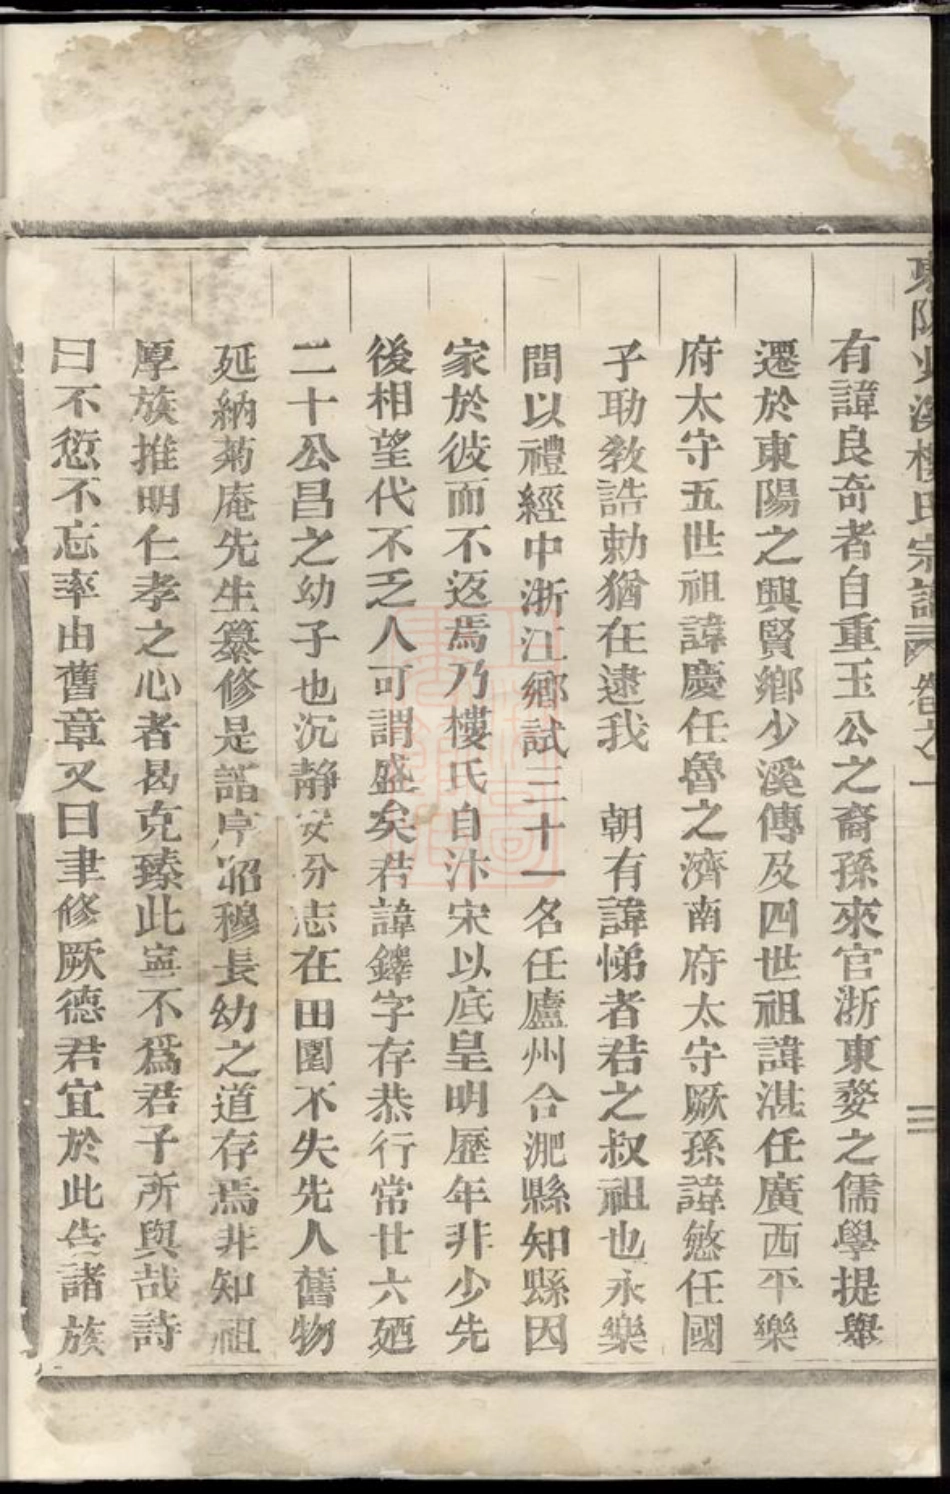 東陽少溪樓氏宗譜 卷之一 三
有諱良奇者自重玉公之裔孫來官浙東婺之儒學提舉
遷於東陽之興賢鄉少溪傳及四世祖諱湛任廣西平樂
府太守五世祖諱慶任魯之濟南府太守厥孫諱慜任國
子助教誥勅猶在逮我 朝有諱悌者君之叔祖也永樂
間以禮經中浙江鄉試三十一名任廬州合淝縣知縣因
家於彼而不返焉乃樓氏自汴宋以底皇明歷年非少先
後相望代不乏人可謂盛矣君諱鐸字存恭行常廿六廼
二十公昌之幼子也沉靜安分志在田園不失先人舊物
延納菊庵先生纂修是譜序昭穆長幼之道存焉非知祖
厚族推明仁孝之心者曷克臻此寧不爲君子所與哉詩
曰不愆不忘率由舊章又曰聿修厥德君宜於此告諸族